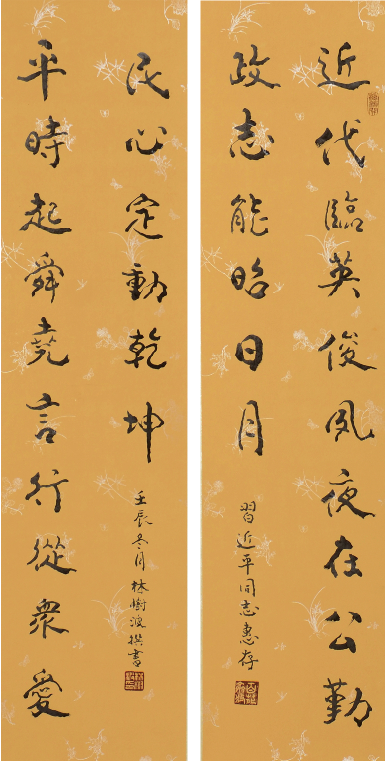 近代臨英俊夙夜在公勤
政志能昭日月
習近平同志惠存
平時起舜堯言行從衆愛
民心定動乾坤
壬辰冬月林樹波撰書